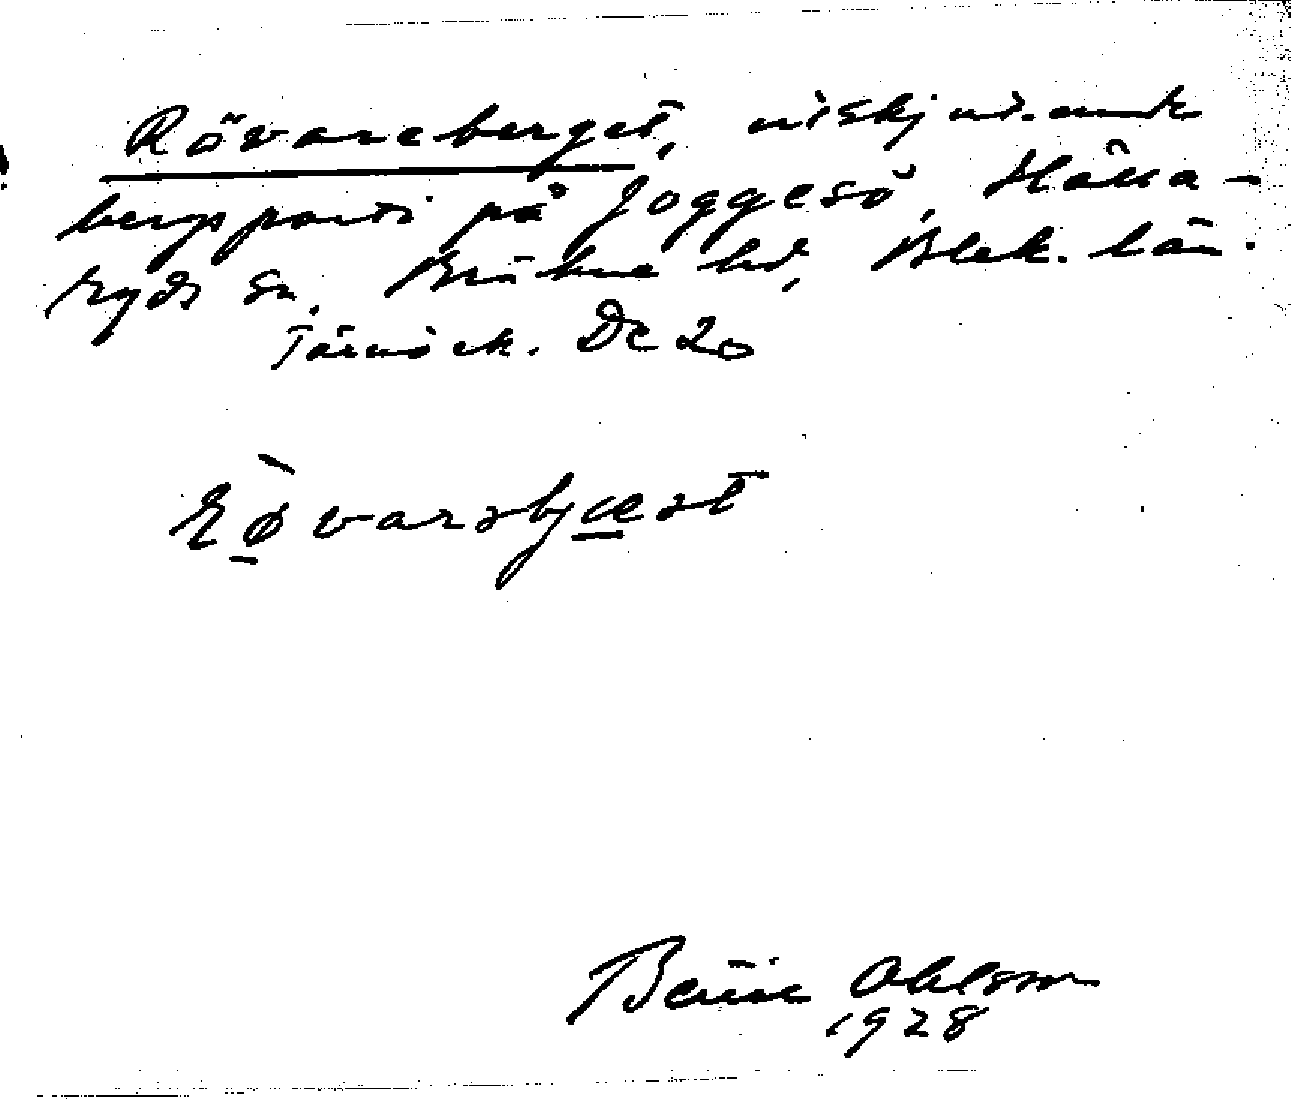 Rövareberget, utskjutande
bergsparti på Joggesö, Hälla-
ryds sn, Bräkne hd, Blek. län.
Tärnö ek. Dc 20
rø̱varsbjæ̱st
Bertil Ohlsson
1928